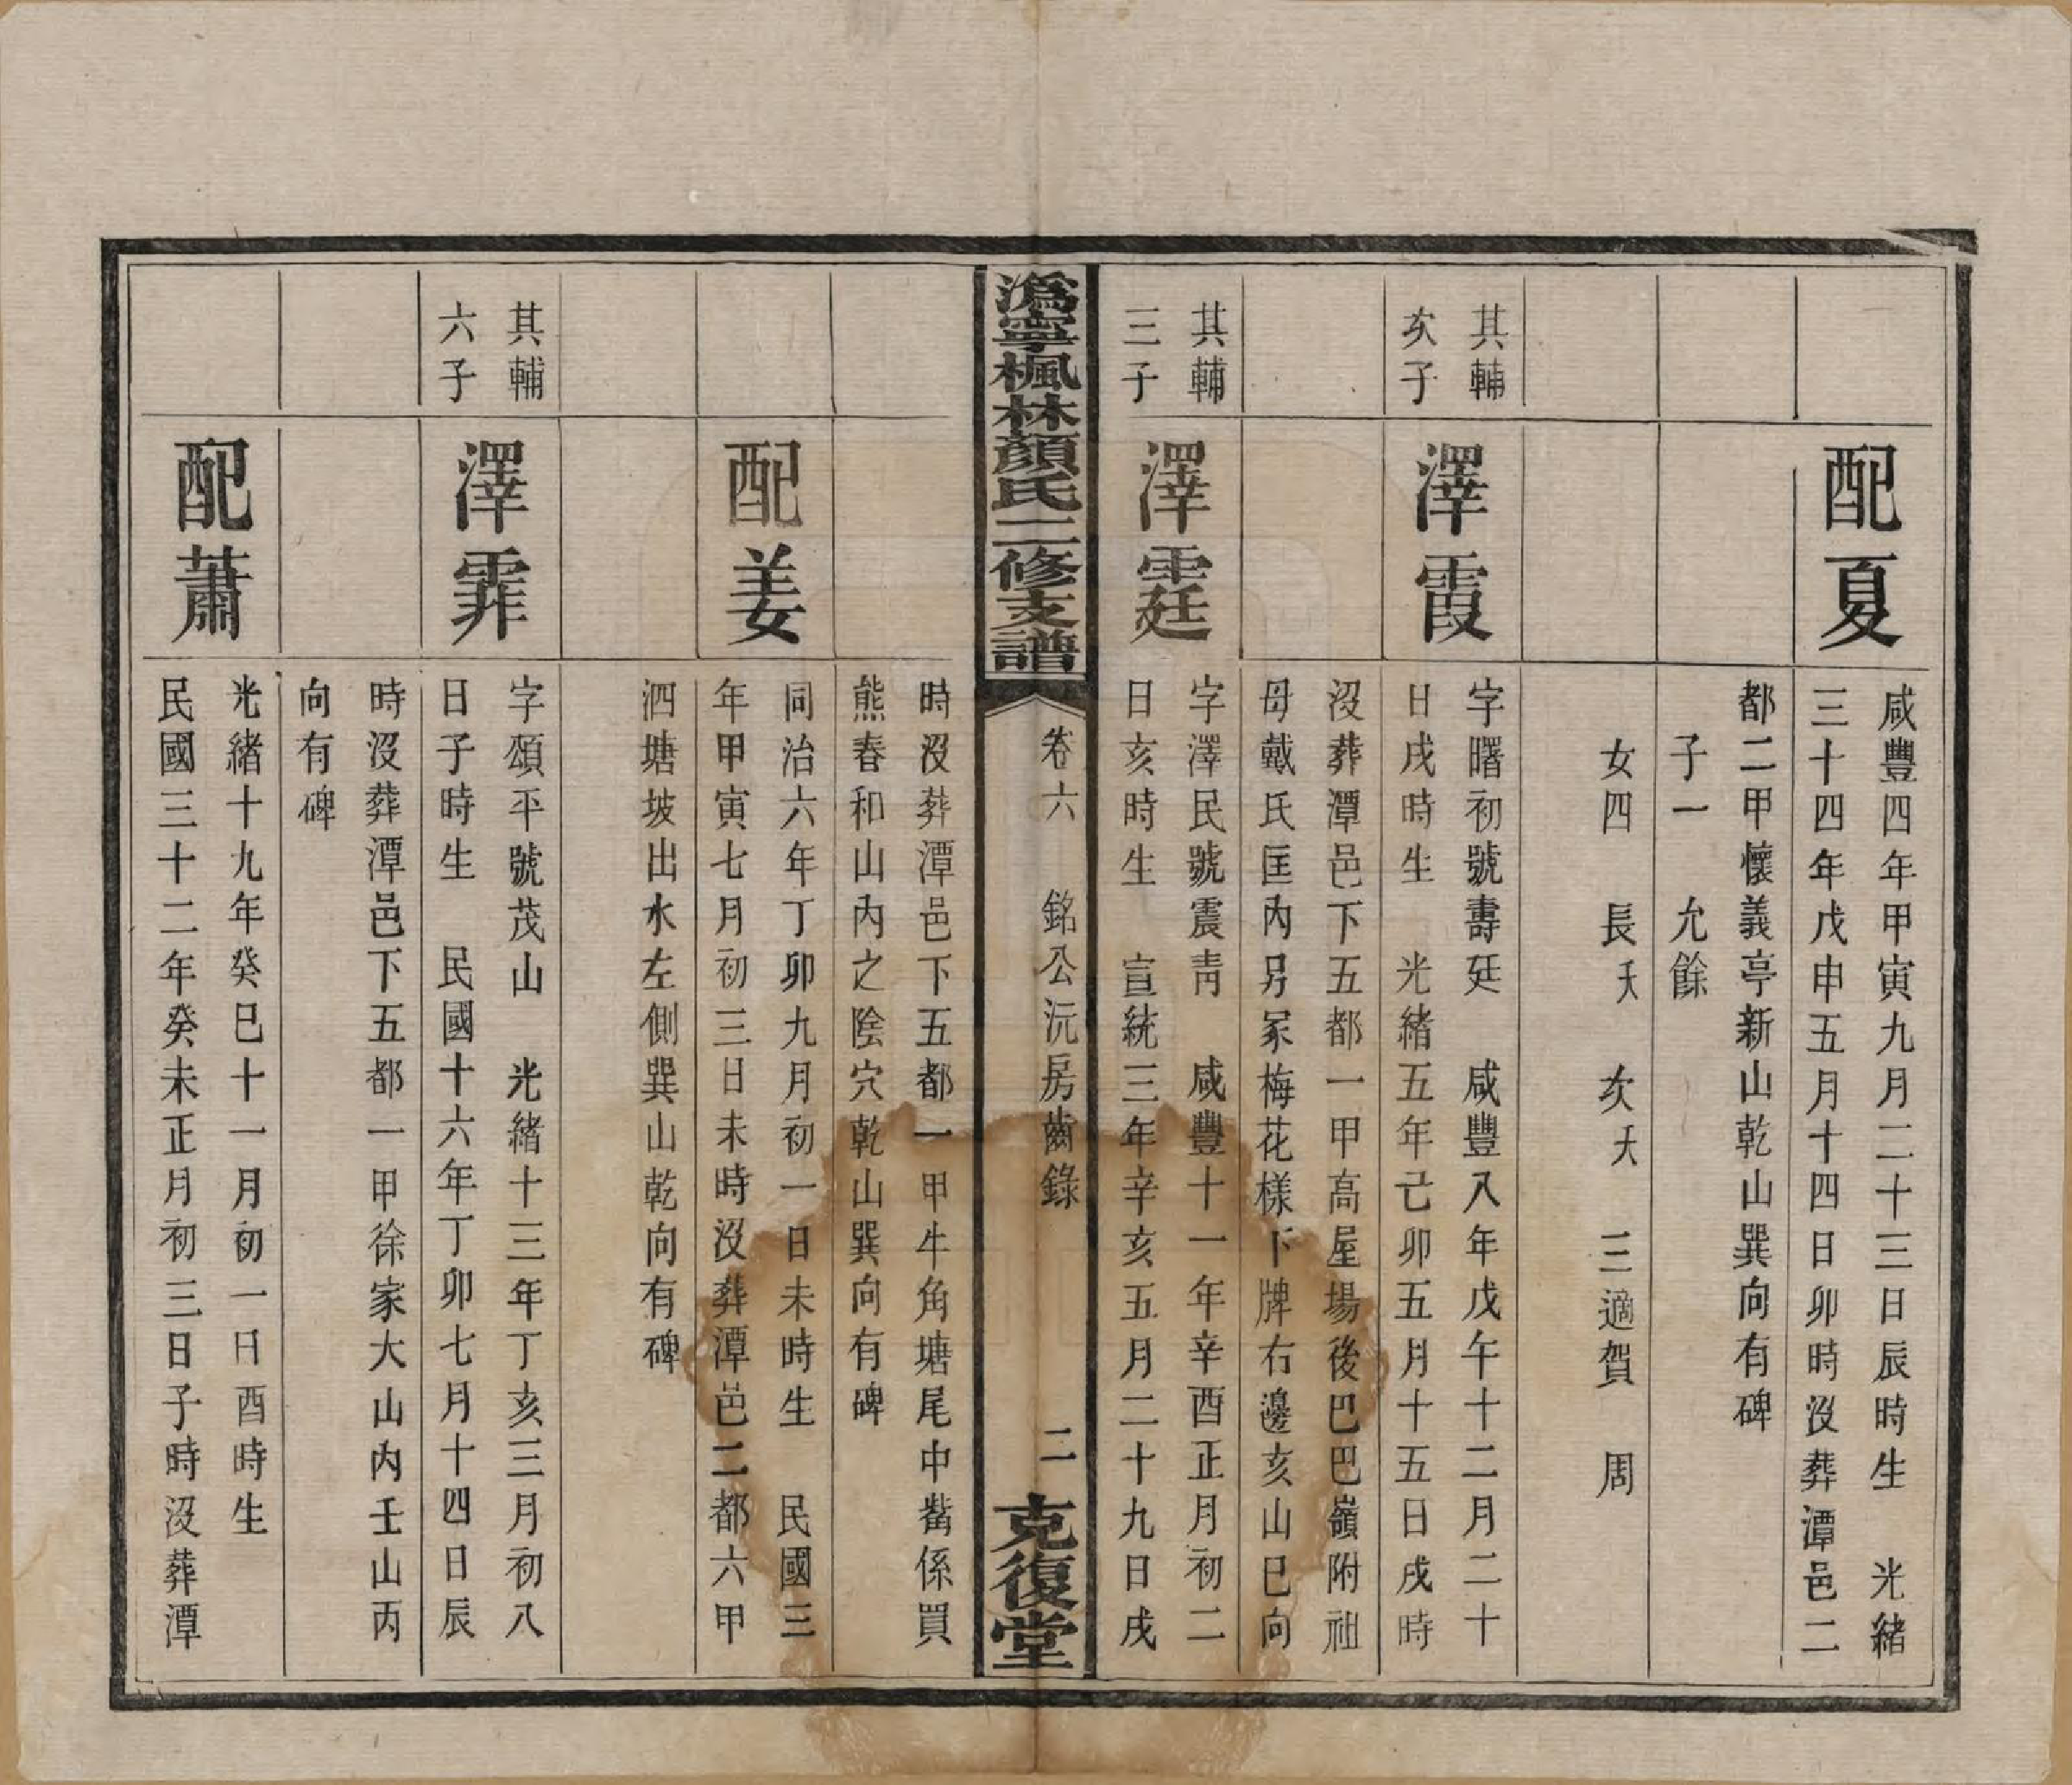 配夏
咸豐四年甲寅九月二十三日辰時生　光緒
三十四年戊申五月十四日卯時沒葬潭邑二
都二甲懷義亭新山乾山巽向有碑
子一　允餘
女四　長夭　次夭　三適賀　周
其輔
次子
澤霞
字曙初號壽廷　咸豐八年戊午十二月二十
日戌時生　光緒五年己卯五月十五日戌時
沒葬潭邑下五都一甲高屋場後巴巴嶺附祖
母戴氏匡內另冢梅花樣下牌右邊亥山巳向
其輔
三子
澤霆
字澤民號震青　咸豐十一年辛酉正月初二
日亥時生　宣統三年辛亥五月二十九日戌
溈寧楓林顏氏三修支譜
卷六　銘公沅房齒錄　二
克復堂
時沒葬潭邑下五都一甲牛角塘尾中嵤係買
熊春和山內之陰穴乾山巽向有碑
配姜
同治六年丁卯九月初一日未時生　民國三
年甲寅七月初三日未時沒葬潭邑二都六甲
泗塘坡出水左側巽山乾向有碑
其輔
六子
澤霏
字頌平號茂山　光緒十三年丁亥三月初八
日子時生　民國十六年丁卯七月十四日辰
時沒葬潭邑下五都一甲徐家大山內壬山丙
向有碑
配蕭
光緒十九年癸巳十一月初一日酉時生
民國三十二年癸未正月初三日子時沒葬潭